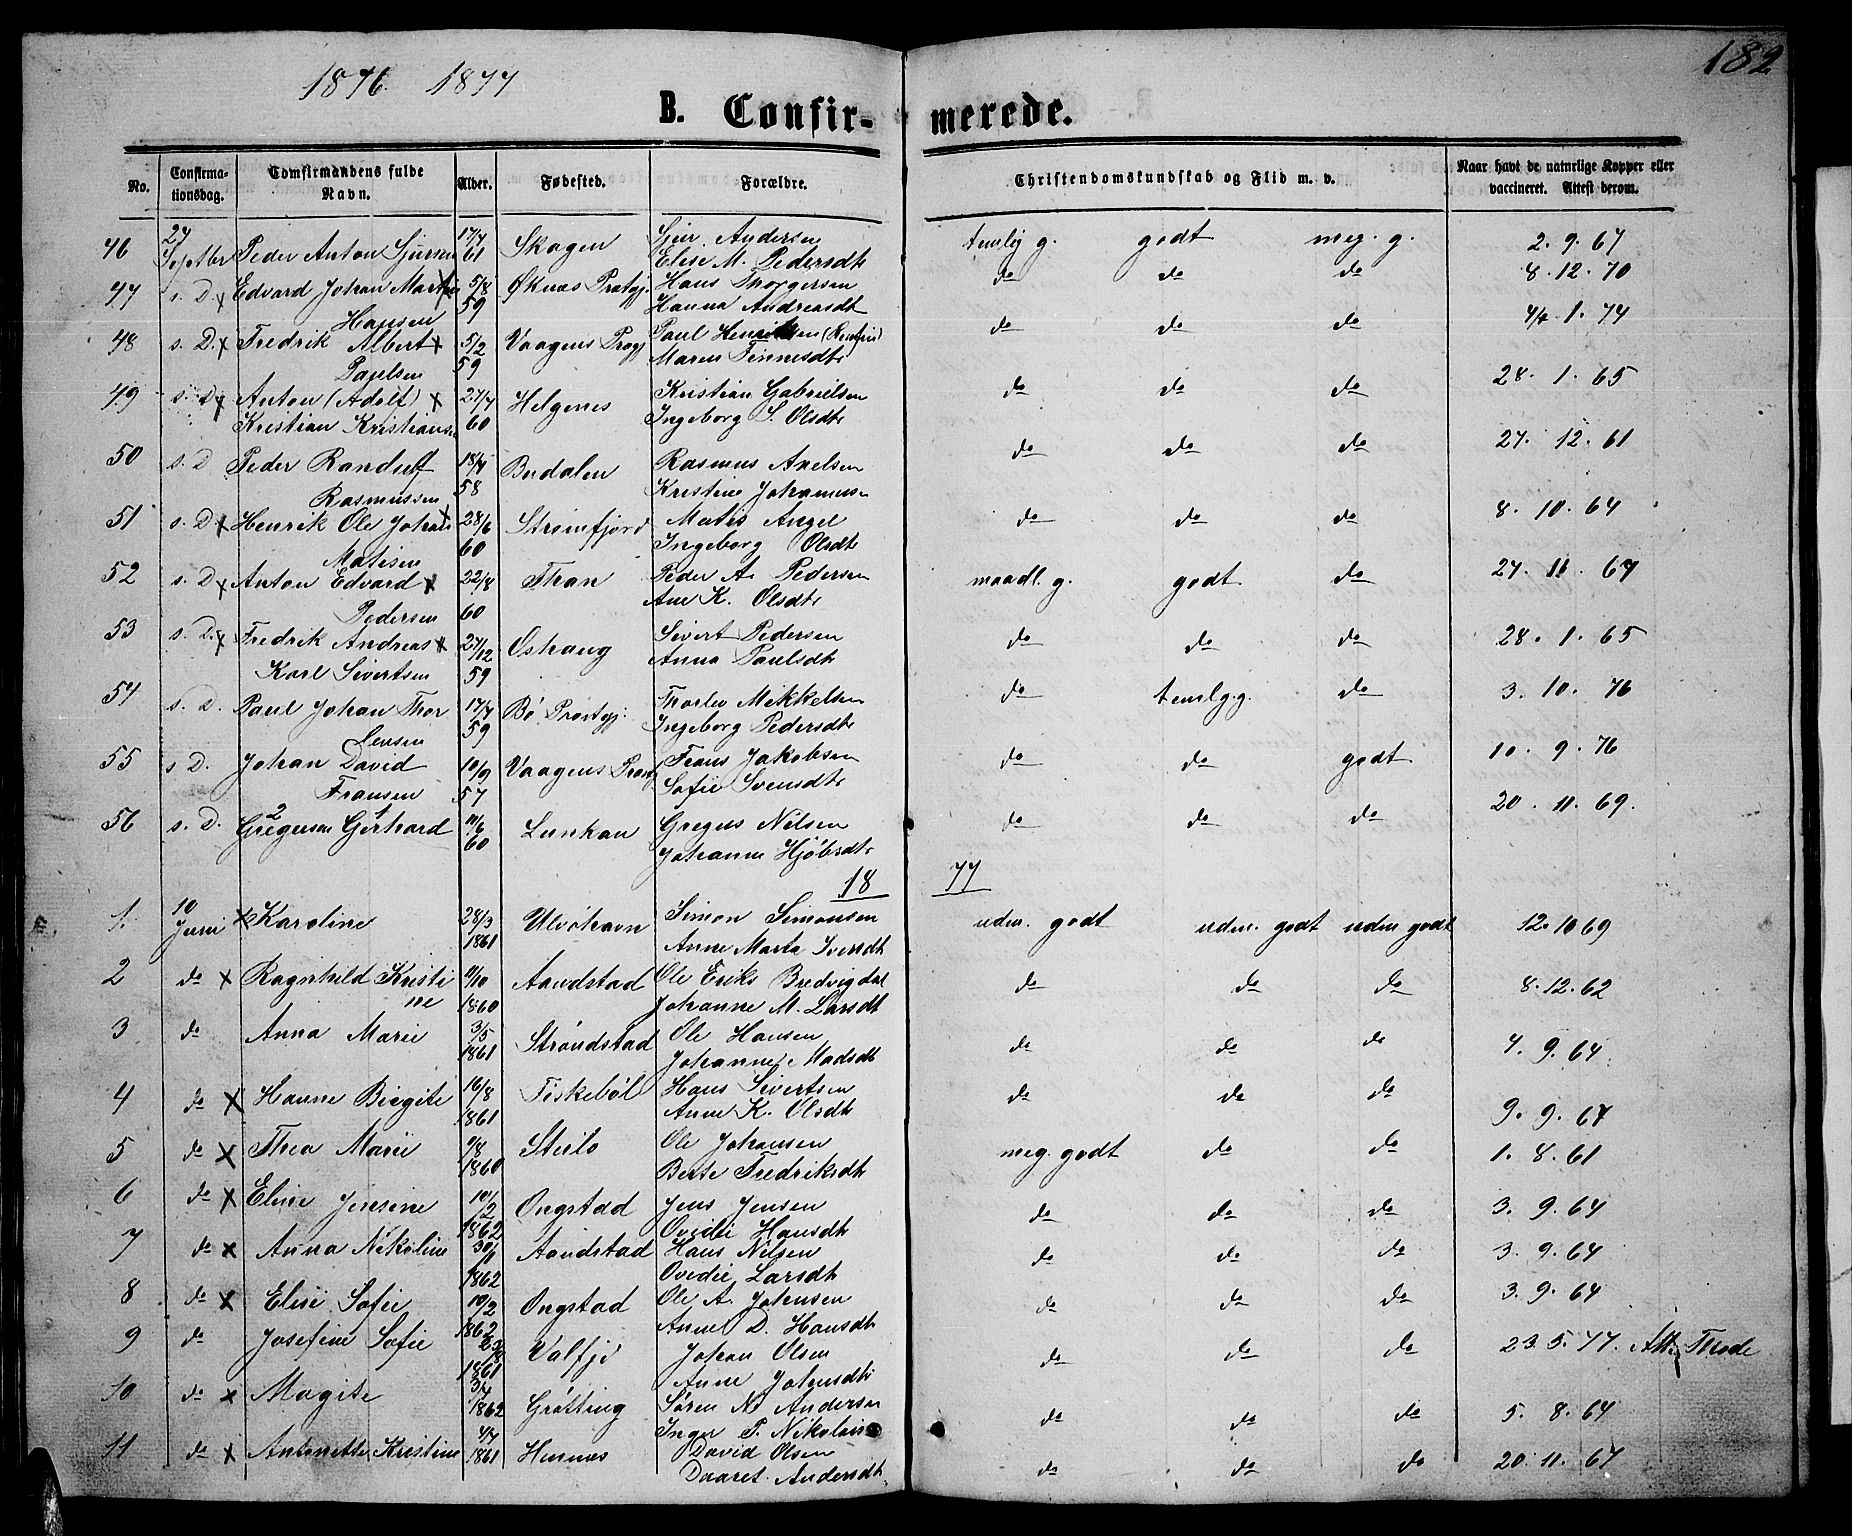 182
1876. 1877
B. Confir- merede.
No. Confirma-tionsdag. Comfirmandens fulde Navn. Alder. Fødested. Forældre. Christendomskundskab og Flid m. v. Naar havt de naturlige Kopper eller vaccineret. Attest derom.
46 24 Septbr Peder Anton Sjursen 17/7 61 Skagen Sjur Andersen temlig g. godt meg. g. 2. 9. 67
Elise M. Pedersdtr
47 s. D. x Edvard Johan Martin 5/8 59 Øknæs Prstgj. Hans Thorgersen do do do 8. 12. 70
Hansen Hanna Andreasdt
48 s. D. x Fredrik Albert x 5/2 59 Vaagens Prstgj Paul Henriksen do do do 1. 74
Paulsen Maren Finnesdtr
49 s. D. x Anton (Adolf) x 27/7 60 Helgenes Kristian Gabrielsen do do do 28. 1. 65
Kristian Kristiansen Ingeborg S. Olsdtr
50 s. D Peder Randulf 18/7 58 Budalen Rasmus Axelsen do do do 27. 12. 61
Rasmussen Kristine Johannesen
51 s. D x Henrik Ole Johan x 28/6 60 Strømfjord Matis Angel do do do 8. 10. 64
Matisen Ingeborg Olsdtr
52 s. D x Anton Edvard x 22/8 60 Than Peder A. Pedersen maadl. g. godt do 27. 11. 67
Pedersen Ane K. Olsdtr
53 s. D. x Fredrik Andreas x 27/12 59 Oshaug Sivert Pedersen do do do 28. 1. 65
Karl Sivertsen Anna Paulsdtr
54 s. D. Paul Johan Thor 17/7 59 Bø Prstgj. Thorlev Mikkelsen do temlg.g. do 3. 10. 76
levsen Ingeborg Pedersdtr
55 s D. Johan David 10/9 57 Vaagens Prstgj Frans Jakobsen do do godt 10. 9. 76
Fransen Sofie Svensdtr
56 s. D. Gregersen 2 Gerhard 1 11/6 60 Lunkan Gregus Nilsen do do do 20. 11. 69.
Johanne Hjøbsdtr
18 77
1. 10 Juni x Karoline 28/3 1861 Ulvøhavn Simon Simonsen udm. godt udm. godt udm godt 12. 10 69
Anne Marta Iversdt
2 do x Ragnhild Kristi 11/10 1860 Aandstad Ole Eriks Bredvigdal do do do 8. 12. 62
ne Johanne M. Larsdt
3 do Anna Marie 3/5 1861 Strøndstad Ole Hansen do do do 7. 9. 64.
Johanne Madsdt
4 do x Hanne Birgite 16/8 1861 Fiskebøl Hans Sivertsen do do do 9. 9. 67
Anne K. Olsdt
5 do x Thea Marie 9/8 1860 Steilo Ole Johansen meg. godt do do 1. 8. 61
Berte Fredriksdt
6 do x Elise Jensine 10/2 1862 Ongstad Jens Jensen do do do 3. 9. 64
Ovedie Hansdt
7 do x Anna Nikoline 30/1 1862 Aandstad Hans Nilsen do do do 3. 9. 64
Ovedie Larsdt
8 do x Elise Sofie 10/2 1862 Ongstad Ole A. Johnsen do do do 3. 9. 64
Anne D. Hansdt
9 do Josefine Sofie 1861 Valfjo Johan Olsen do do do 23. 5. 77. Att. Thode
Anne Johnsdtr
10 do x Magite 3/4 1862 Grøtting Søren N. Andersen do do do 5. 8. 64
Inger F. Nikolais
11 do x Antonette Kristine 4/7 1861 Hennæs David Olsen do do do 20. 11. 67
Daaret Andersdt